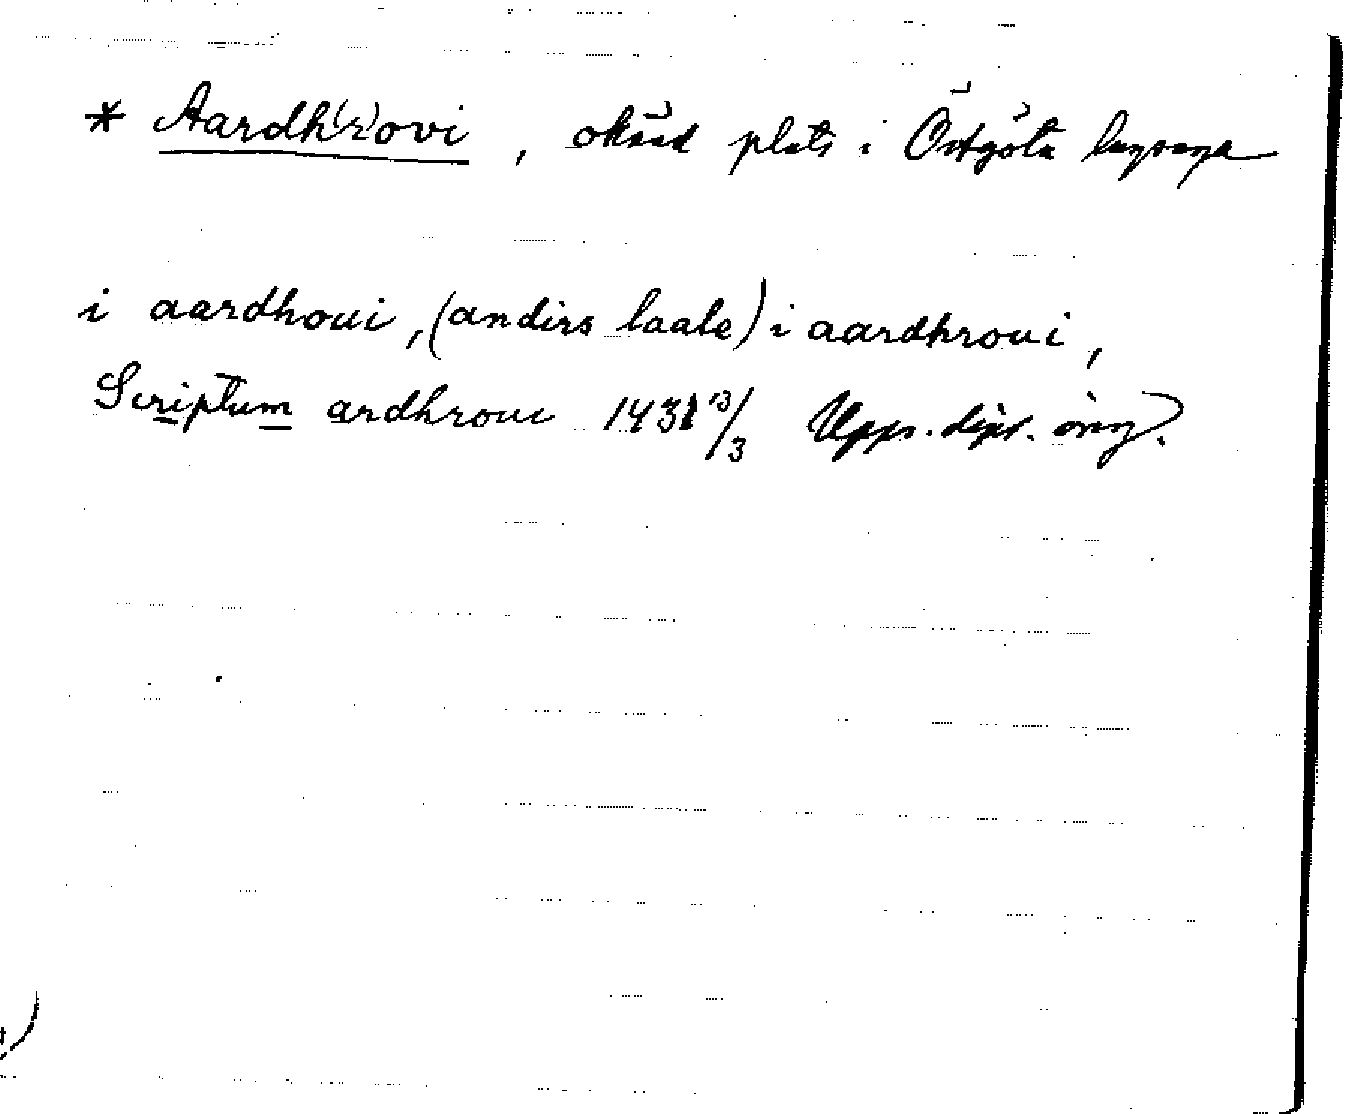 * Aardh(r)ovi, okänd plats i Östgöta lagsaga
i aardhoui, (andirs laale) i aardhroui,
Scriptum ardhroui 1431 13/3 Upps. dipl. orig.